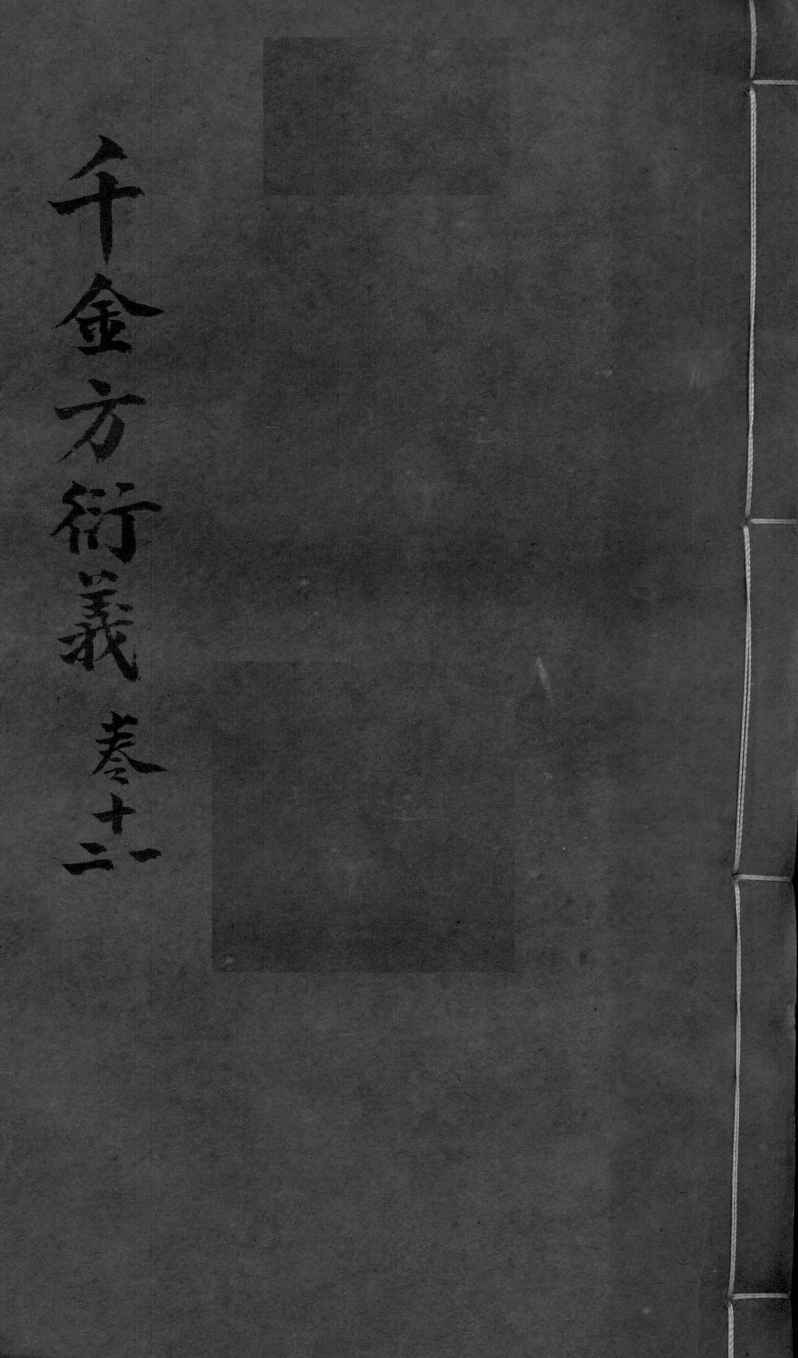 千金方衍義 卷十一
二